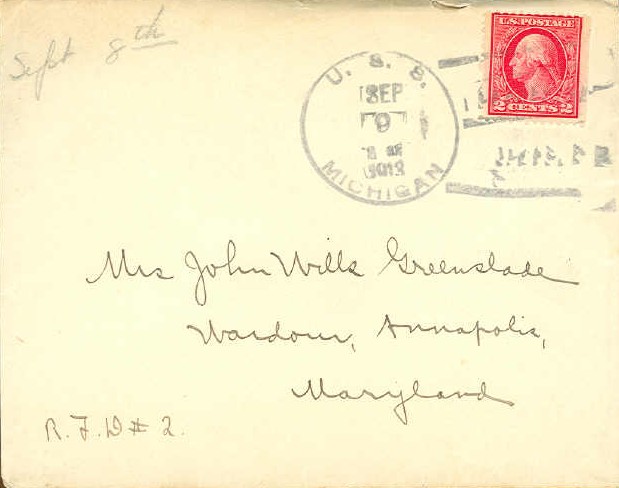 Sept 8th
U. S. S.
SEP
9
1913
MICHIGAN
U.S. POSTAGE
2 CENTS 2
Mrs John Wills Greenslade
Wardour, Annapolis,
Maryland
R.F.D # 2.